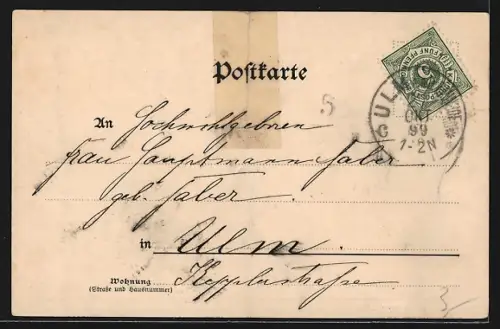 Postkarte
FÜNF PFENNIG
5
ULM
OKT
99
1-2N
C
An Hochwohlgeboren
Frau Hauptmann Faber
geb. Faber
in Ulm.
Wohnung Kepplerstraße
(Straße und Hausnummer)